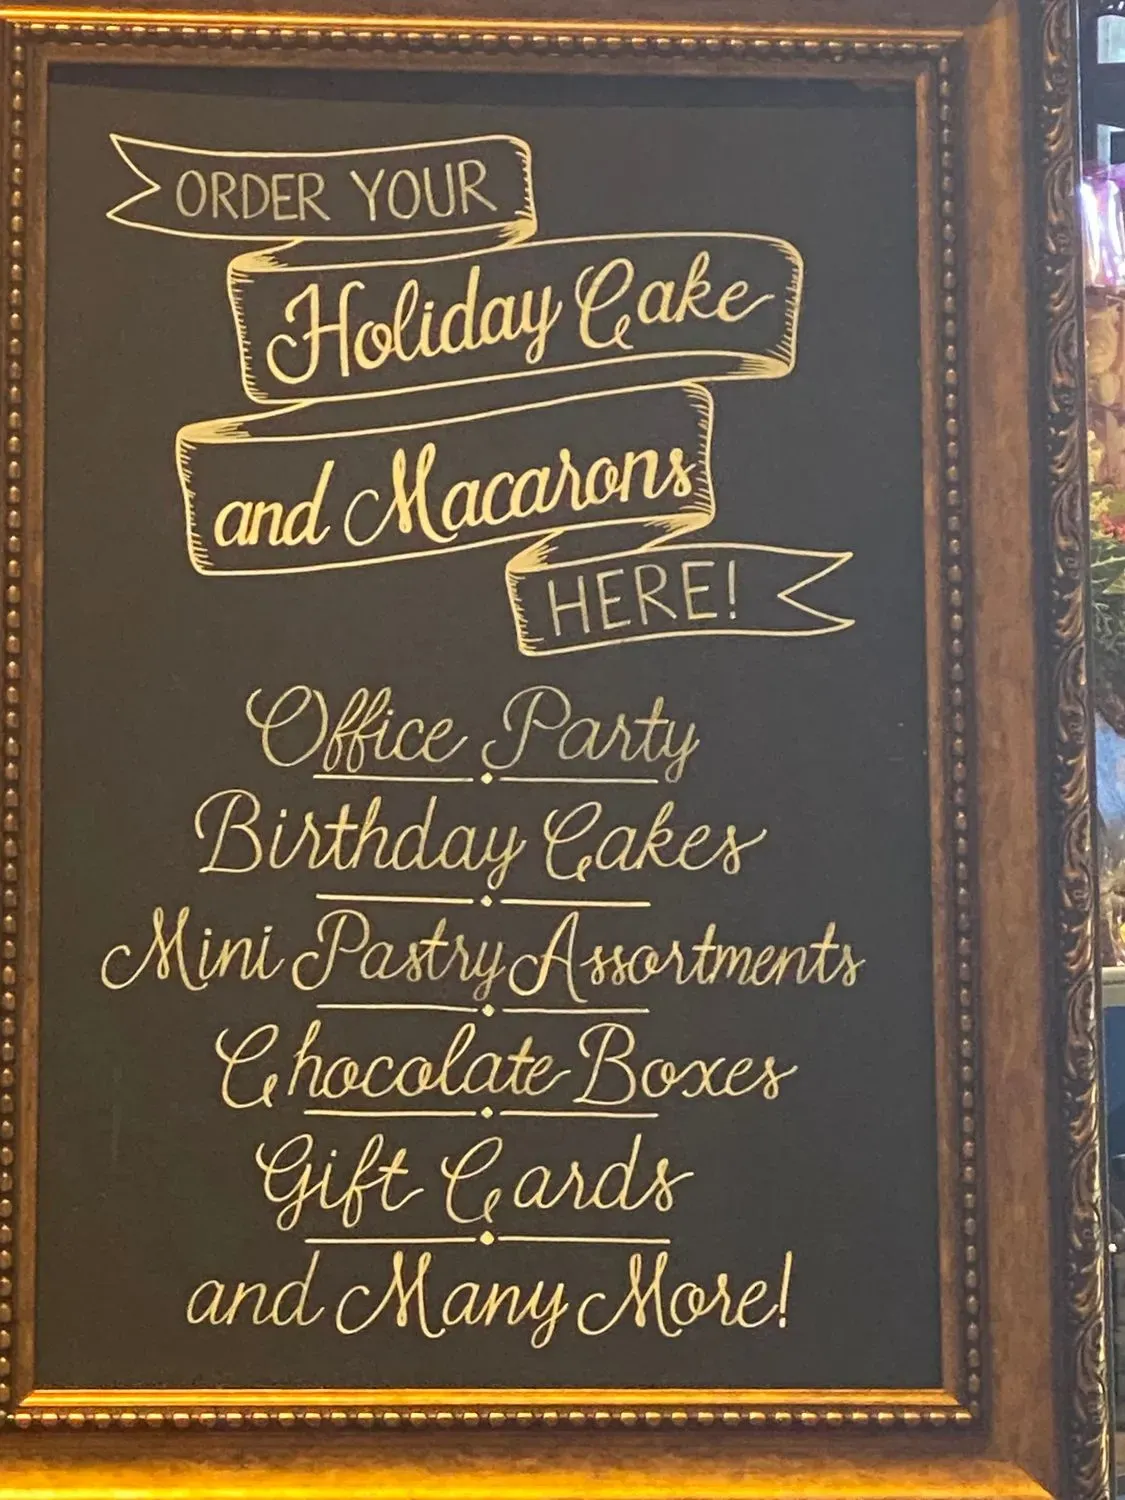 ORDER YOUR
Holiday Cake
and Macarons
HERE!
Office Party
Birthday Cakes
Mini Pastry Assortments
Chocolate Boxes
Gift Cards
and Many More!